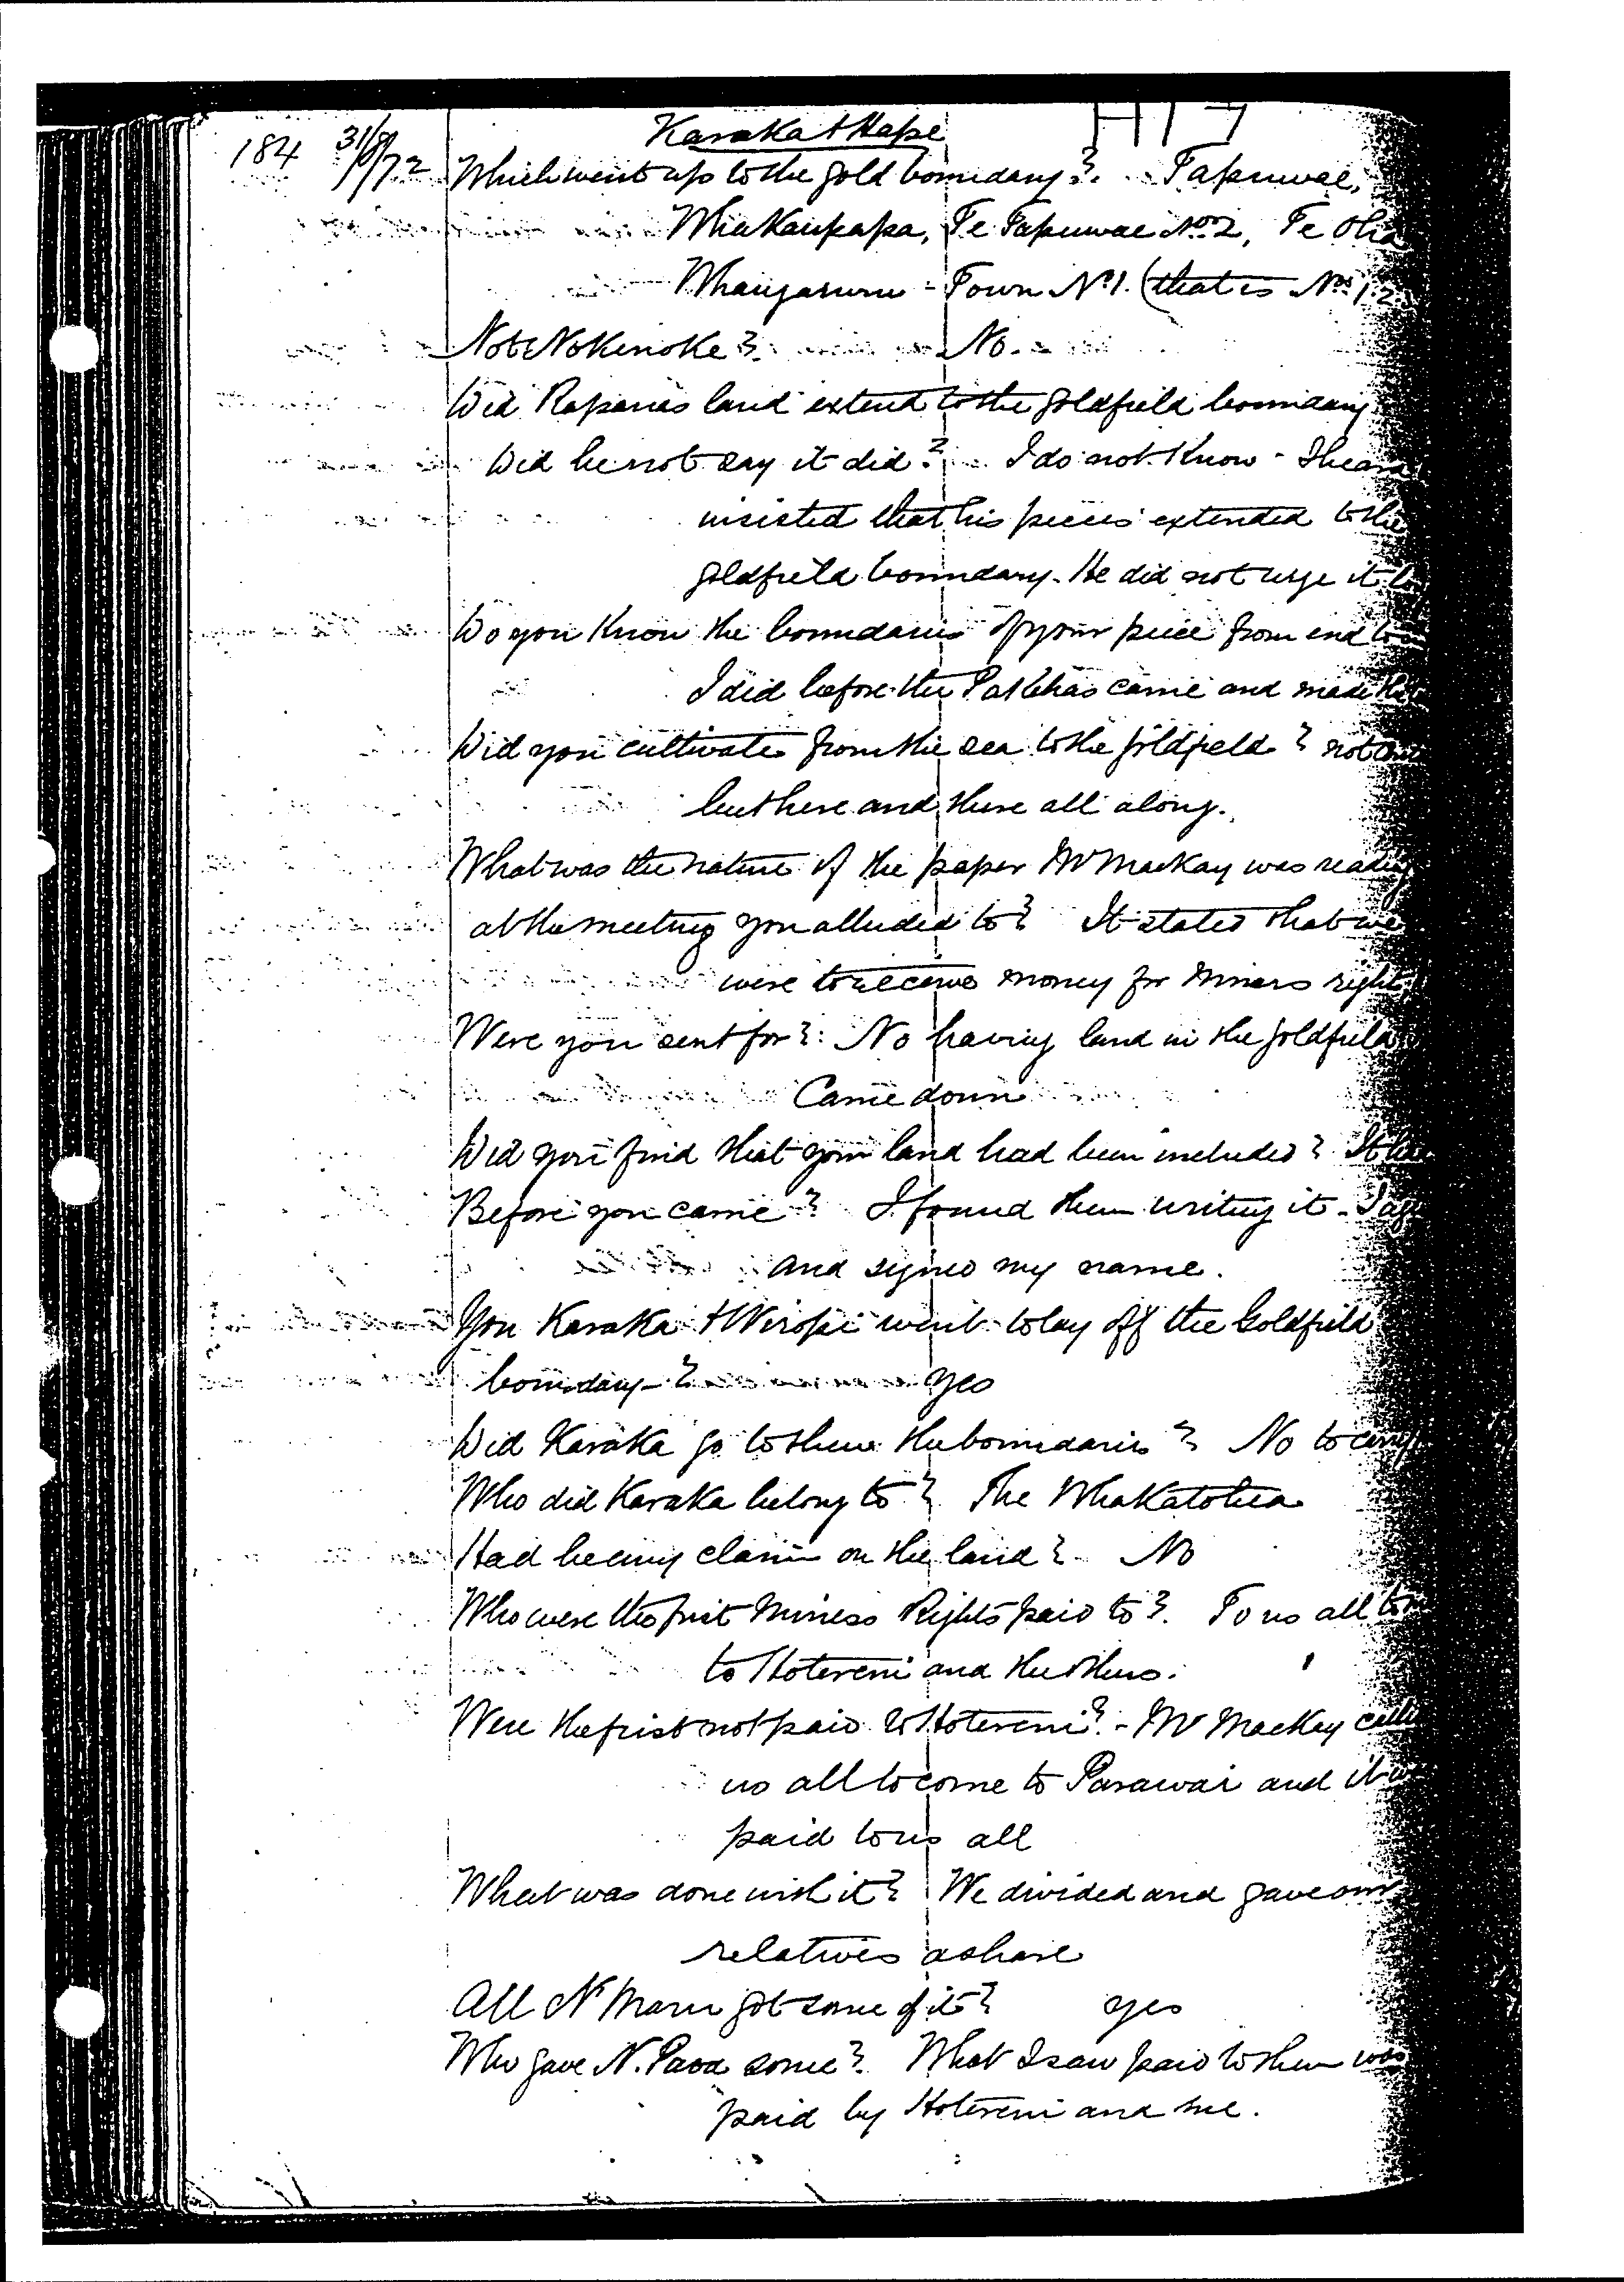 184 31/8/72 Karaka & Hape H17
Which went up to the gold boundary? Tapuwae,
Whakaupapa, Te Tapuwae No. 2, Te
Whangaruru - Town No 1. (that is Nos 1. 2.
Not Nokenoke? No.
Did Rapanas land extend to the goldfield boundary
Did he not say it did? I do not know - I
insisted that his pieces extended to the
goldfield boundary. He did not urge it
Do you know the boundaries of your piece from end to
I did before the Pakehas came and made
Did you cultivate from the sea to the goldfield? not
but here and there all along.
What was the nature of the paper Mr Mackay was reading
at the meeting you alluded to? It stated that we
were to receive money for Miners right
Were you sent for? No having land in the goldfield
Came down
Did you find that your land had been included? It
Before you came? I found them writing it - I
and signed my name.
You Karaka & Wiropi went to lay off the Goldfield
boundary - ? Yes
Did Karaka go to shew the boundaries? No to
Who did Karaka belong to? The Whakatohea
Had he any claim on the land? No
Who were the first Miners Rights paid to? To us all
to Hotereni and the others.
Were the first not paid to Hotereni? - Mr Mackay
us all to come to Parawai and it
paid to us all
What was done with it? We divided and gave our
relatives a share
All N Maru got some of it? yes
Who gave N. Paoa some? What I saw paid to them was
paid by Hotereni and me.